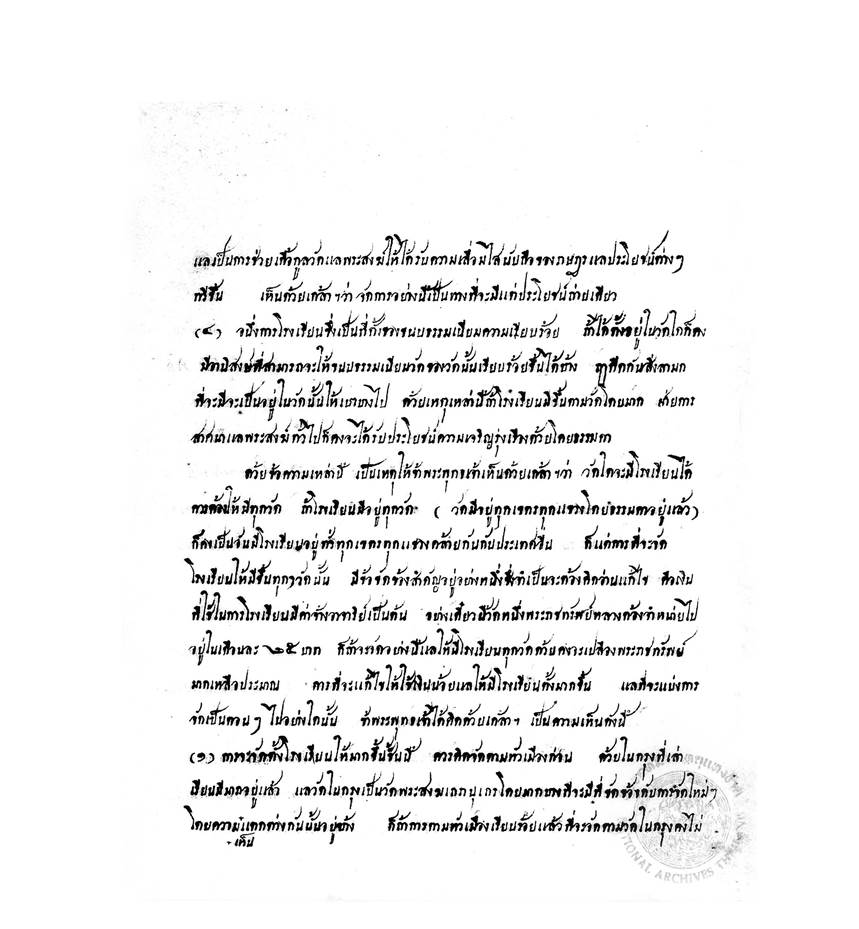 แลเป็นการช่วยเกื้อกูลวัดแลพระสงฆ์ให้ได้รับความเลื่อมใสนับถือของราษฎรแลประโยชน์ต่างๆ
ทวีขึ้น เห็นด้วยเกล้าฯ ว่า จัดการอย่างนี้เป็นทางที่จะมีแต่ประโยชน์ถ่ายเดียว
(๔) อนึ่งการโรงเรียนซึ่งเป็นที่ตั้งของขนบธรรมเนียมความเรียบร้อย ถ้าได้ตั้งอยู่ในวัดใดก็คง
มีอานิสงษ์ที่สามารถจะให้ขนบธรรมเนียมวัดของวัดนั้นเรียบร้อยขึ้นได้บ้าง
ที่จะมีจะเป็นอยู่ในวัดนั้นให้เบาบางไป ด้วยเหตุเหล่านี้ถ้าโรงเรียนมีขึ้นตามวัดโดยมาก ฝ่ายการ
สาศนาแลพระสงฆ์ทั่วไปก็คงจะได้รับประโยชน์ความเจริญรุ่งเรืองด้วยโดยธรรมดา
ด้วยข้อความเหล่านี้ เป็นเหตุให้ข้าพระพุทธเจ้าเห็นด้วยเกล้าฯ ว่า วัดใดจะมีโรงเรียนได้
ควรต้องให้มีทุกวัด ถ้าโรงเรียนมีอยู่ทุกวัด (วัดมีอยู่ทุกเขตรทุกแขวงโดยธรรมดาอยู่แล้ว)
ก็คงเป็นอันมีโรงเรียนอยู่ทั่วทุกเขตรทุกแขวงคล้ายกันกับประเทศอื่น ก็แต่การที่จะจัด
โรงเรียนให้มีขึ้นทุกๆวัดนั้น มีข้อขัดข้องสำคัญอยู่อย่างหนึ่งซึ่งจำเป็นจะต้องคิดอ่านแก้ไข คือเงิน
ที่ใช้ในการโรงเรียนมีค่าจ้างอาจาริย์เป็นต้น อย่างเดี๋ยวนี้วัดหนึ่งพระราชทรัพย์หลวงต้องจำหน่ายไป
อยู่ในเดือนละ ๒๕ บาท ก็ถ้าจะจัดอย่างนี้แลให้มีโรงเรียนทุกวัดด้วยคงจะเปลืองพระราชทรัพย์
มากเหลือประมาณ การที่จะแก้ไขให้ใช้เงินน้อยแลให้มีโรงเรียนตั้งมากขึ้น แลที่จะแบ่งการ
จัดเป็นตอนๆ ไปอย่างใดนั้น ข้าพระพุทธเจ้าได้คิดด้วยเกล้าฯ เป็นความเห็นดังนี้
(๑) การจัดตั้งโรงเรียนให้มากขึ้นชั้นนี้ ควรคิดจัดตามหัวเมืองก่อน ด้วยในกรุงที่เล่า
เรียนมีมากอยู่แล้ว แลวัดในกรุงเป็นวัดพระสงฆ์เถรานุเถรโดยมากบางทีจะมีที่ขัดข้องกับการจัดใหม่ๆ
โดยความเห็นแตกต่างกันนั้นอยู่บ้าง ก็ถ้าการตามหัวเมืองเรียบร้อยแล้วที่จะจัดตามวัดในกรุงคงไม่
NATIONAL ARCHIVES